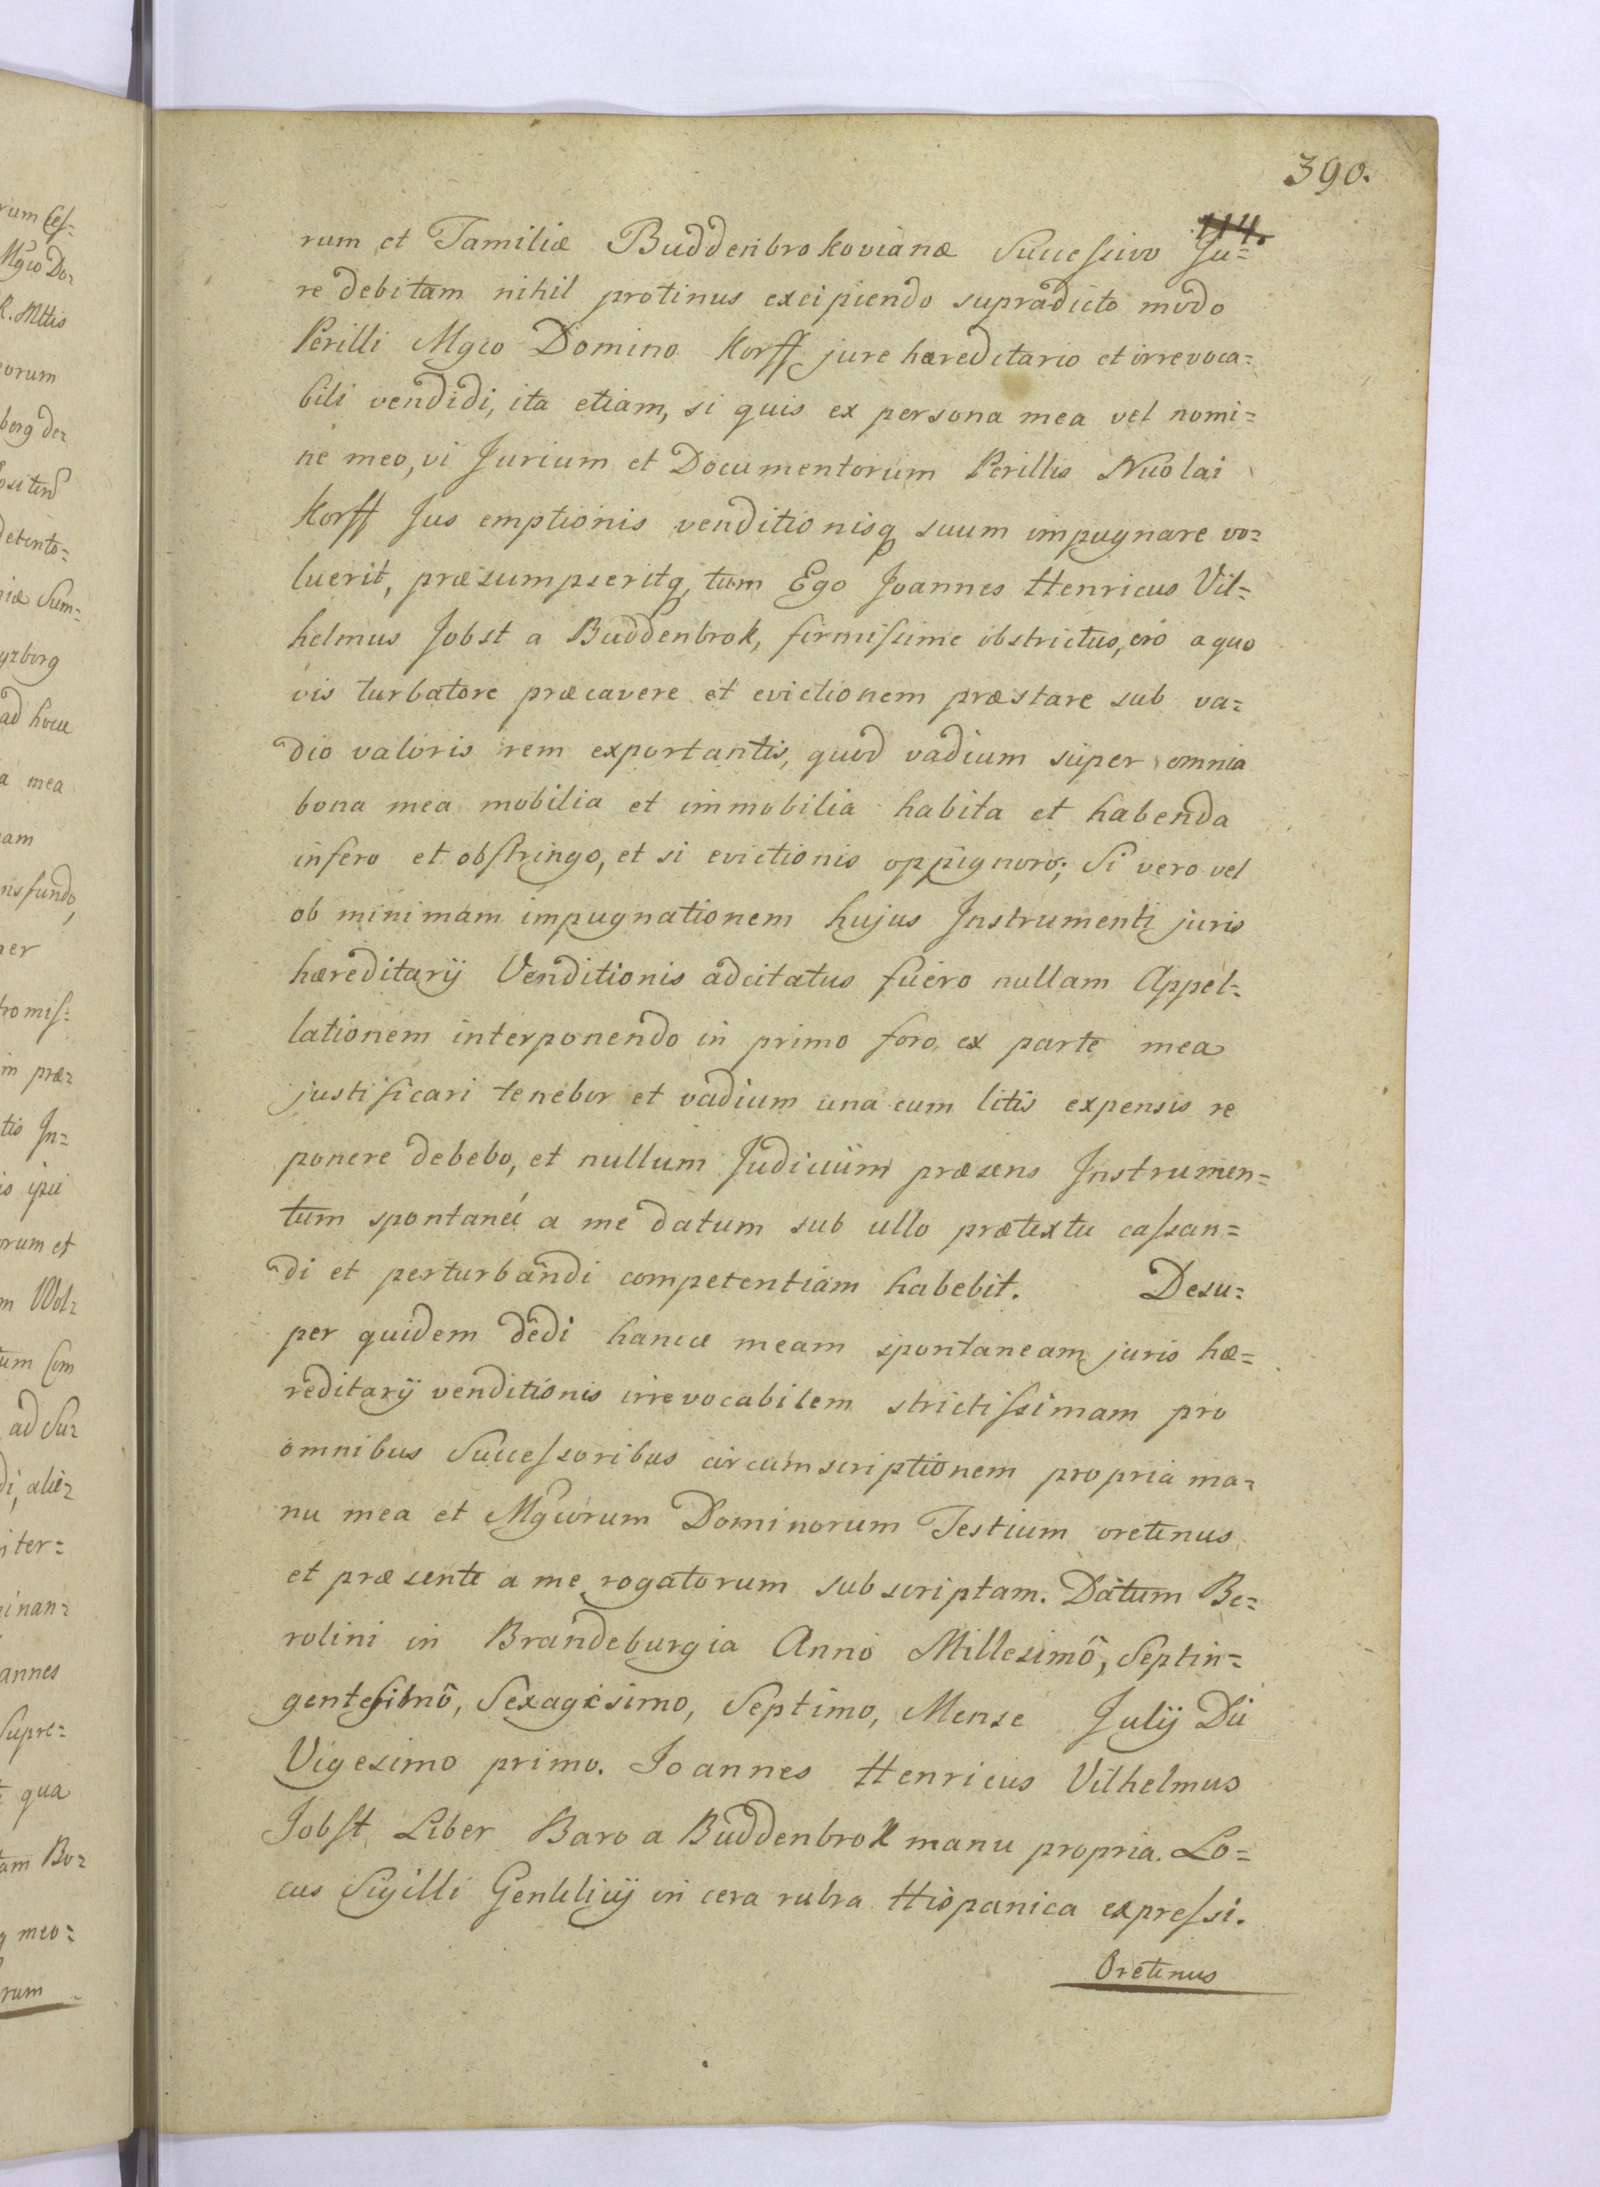 390.
114.
rum et Familiæ Buddenbrokovianæ Successivo Ju=
re debitam nihil protinus excipiendo supradicto modo
Perilli Mgco Domino Korff jure hæreditario et irrevoca=
bili vendidi, ita etiam, si quis ex persona mea vel nomi=
ne meo, vi Jurium et Documentorum Perillis Nicolai
Korff Jus emptionis venditionisq suum impugnare vo=
luerit, præsumpseritq, tum Ego Joannes Henricus Vil=
helmus Jobst a Buddenbrok, firmissime obstrictus, ero a quo
vis turbatore præcavere et evictionem præstare sub va=
dio valoris rem exportantis, quod vadium super omnia
bona mea mobilia et immobilia habita et habenda
infero et obstringo, et si evictionis oppignoro; Si vero vel
ob minimam impugnationem hujus Instrumenti juris
hæreditarij Venditionis adcitatus fuero nullam Appel=
lationem interponendo in primo foro ex parte mea
justificari tenebor et vadium una cum litis expensis re
ponere debebo, et nullum Judicium præsens Instrumen=
tum spontanei a me datum sub ullo prætextu cassan=
di et perturbandi competentiam habebit. Desu=
per quidem dedi hancce meam spontaneam juris hæ=
reditarij venditionis irrevocabilem strictissimam pro
omnibus Successoribus circumscriptionem propria ma=
nu mea et Mgcorum Dominorum Testium oretenus
et præsente a me rogatorum subscriptam. Datum Be=
rolini in Brandeburgia Anno Millesimô, Septin=
gentesimô, Sexagesimo, Septimo, Mense Julij Dii
Vigesimo primo. Joannes Henricus Vilhelmus
Jobst Liber Baro a Buddenbrok manu propria. Lo=
cus Sigilli Gentilicij in cera rubra Hispanica expressi.
Oretenus
rum Ces=
Mgco Do=
R. Mttis
eorum
berg de=
detento=
niæ Sum=
a mea
nsfundo,
ner
romis=
m præ=
tis In=
orum et
m Wol=
tum Com
ad Su=
iter=
inan=
annes
Supre=
qua
tam Bo=
q meo=
rum